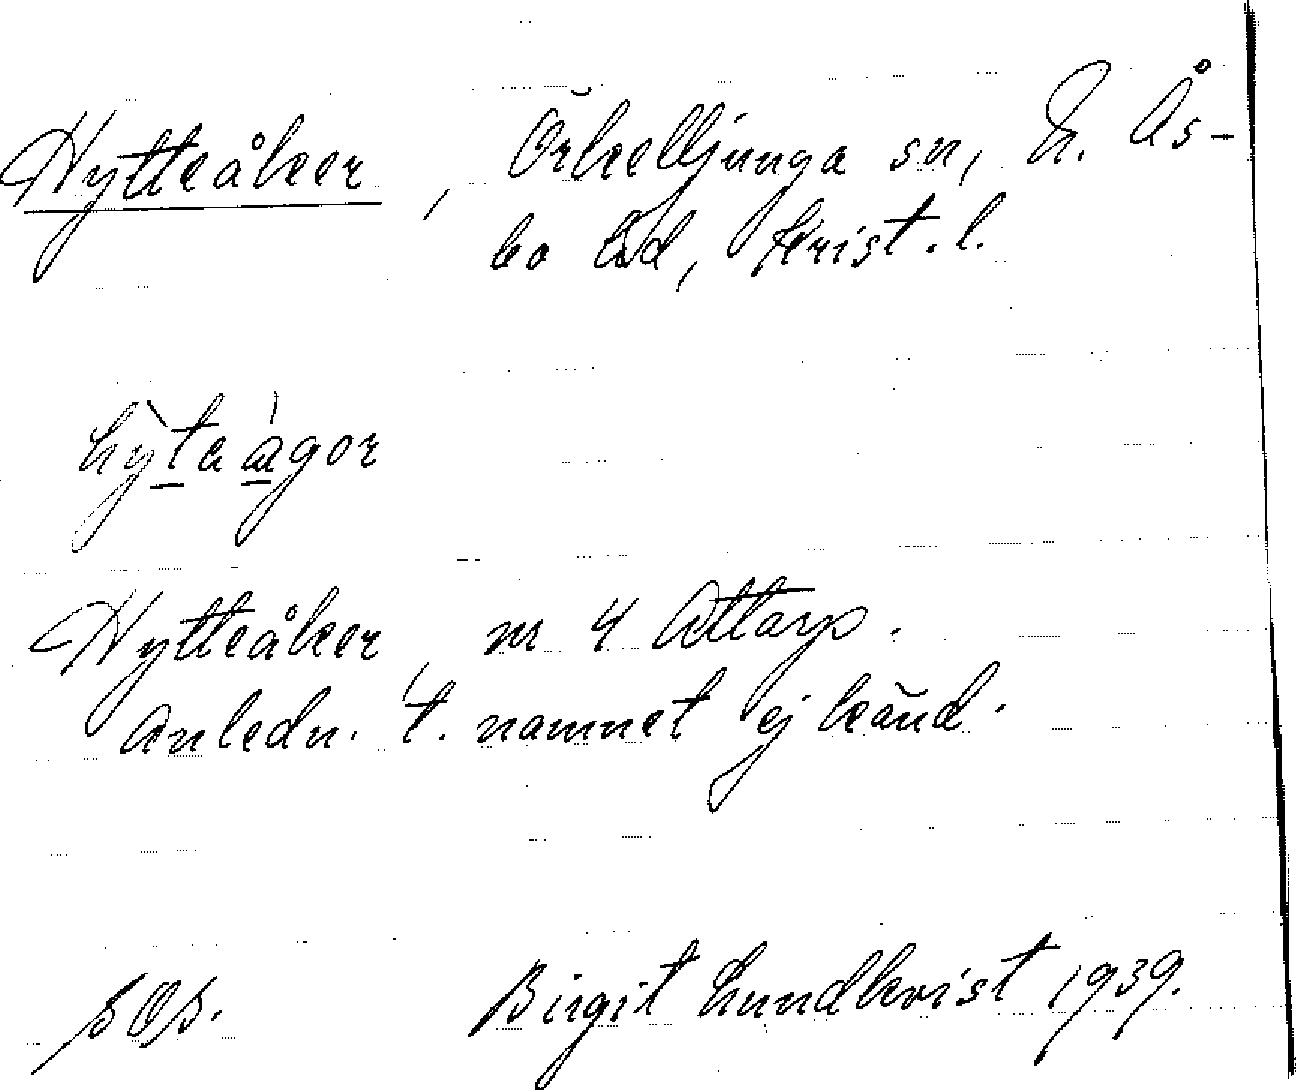 Hytteåker, Örkelljunga sn, N. Ås-
bo hd, Krist. l.
hỳta ágor
Hytteåker, nr 4 Attarp.
Anledn. t. namnet ej känd.
Birgit Lundkvist 1939.